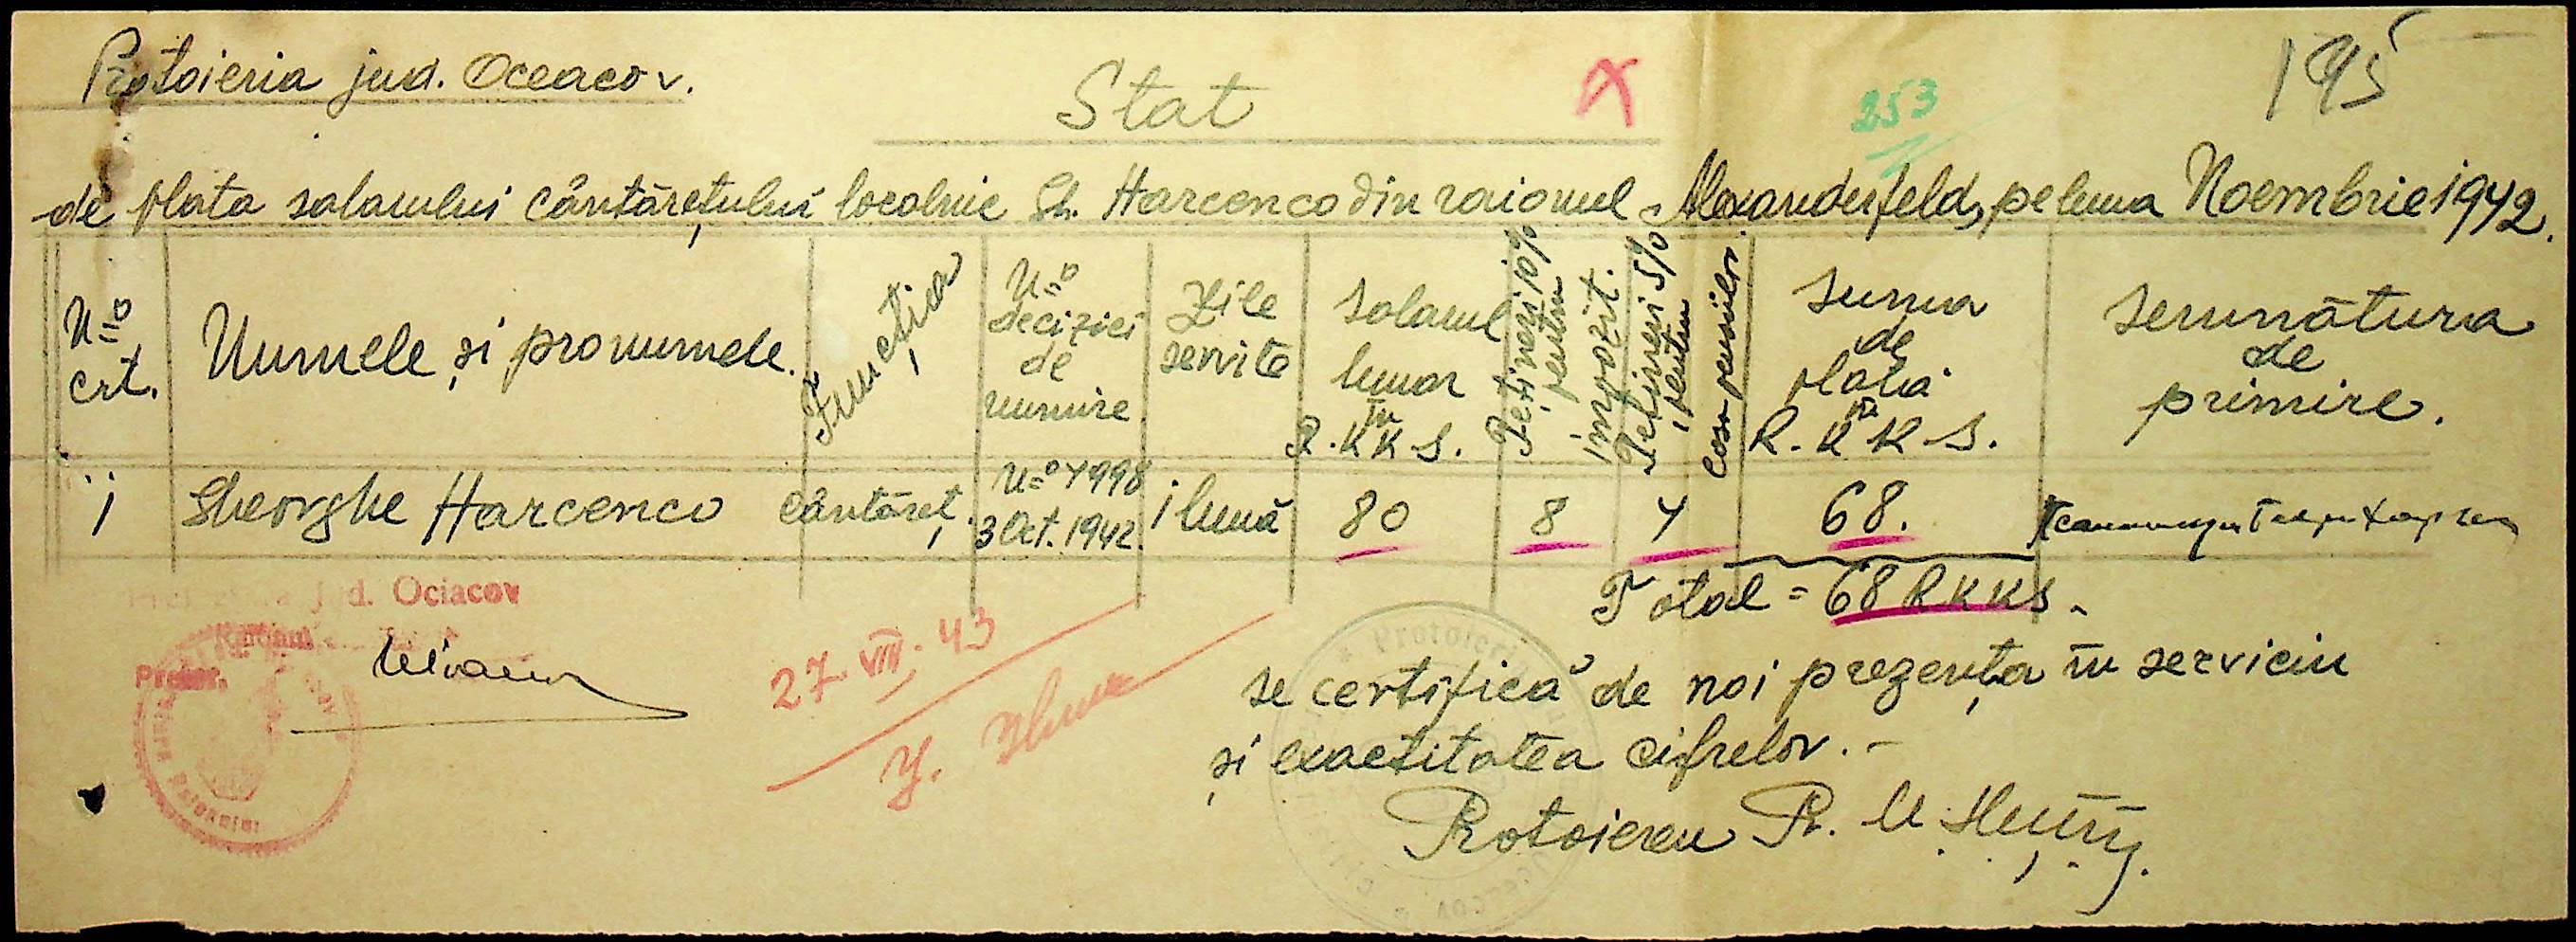 Protoieria jud. Oceacov.
195
Stat
253
de plata salarului cântărețului localnic Gh. Harcenco din raionul Alexanderfeld, pe luna Noembrie 1942.
No crt.
Numele și pronumele.
Funcția
No deciziei de numire
Zile servite
Salarul lunar în R.K.K.S.
Rețineri 10% pentru impozit.
Rețineri 5% pentru casa pensiilor.
Suma de plată în R.K.K.S.
Semnătura de primire.
1
Gheorghe Harcenco
Cântăreț.
No 4998 3 Oct. 1942.
1 lună
80
8
4
68.
Total = 68 RKKS.
jud. Ociacov
27.VIII.43
Se certifică de noi prezența în serviciu
și exactitatea cifrelor. -
Protoiereu Pr.